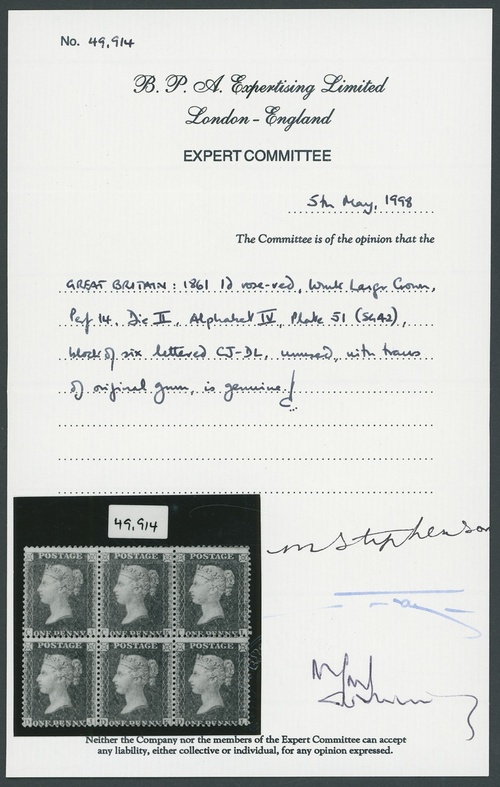 No. 49,914
B. P. A. Expertising Limited
London - England
EXPERT COMMITTEE
5th May, 1998
The Committee is of the opinion that the
GREAT BRITAIN: 1861 1d rose-red, Wmk Large Crown,
Perf 14, Die II, Alphabet IV, Plate 51 (SG42),
block of six lettered CJ-DL, unused, with traces
of original gum, is genuine.
49,914
POSTAGE POSTAGE POSTAGE
ONE PENNY ONE PENNY ONE PENNY
POSTAGE POSTAGE POSTAGE
ONE PENNY ONE PENNY ONE PENNY
M Stephenson
Neither the Company nor the members of the Expert Committee can accept
any liability, either collective or individual, for any opinion expressed.